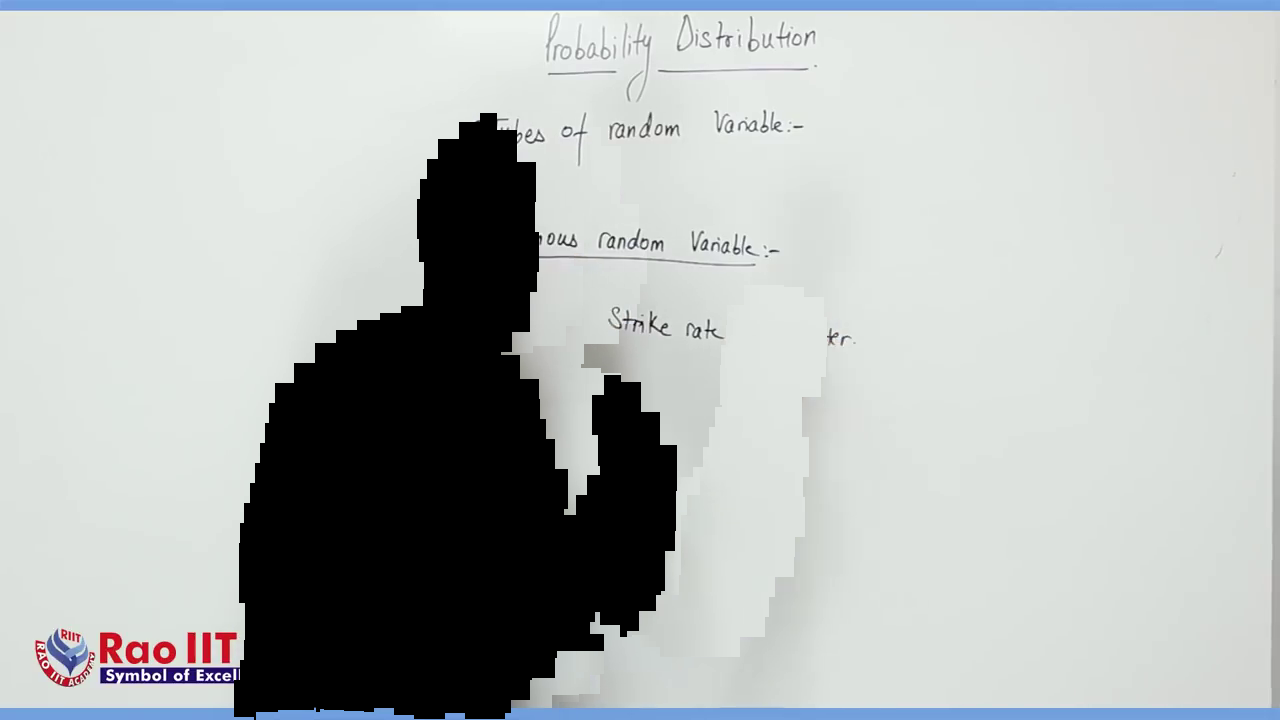 Probability Distribution
of random Variable:-
random Variable:-
Strike rate
RIIT
RAO IIT ACADEMY
Rao IIT
Symbol of